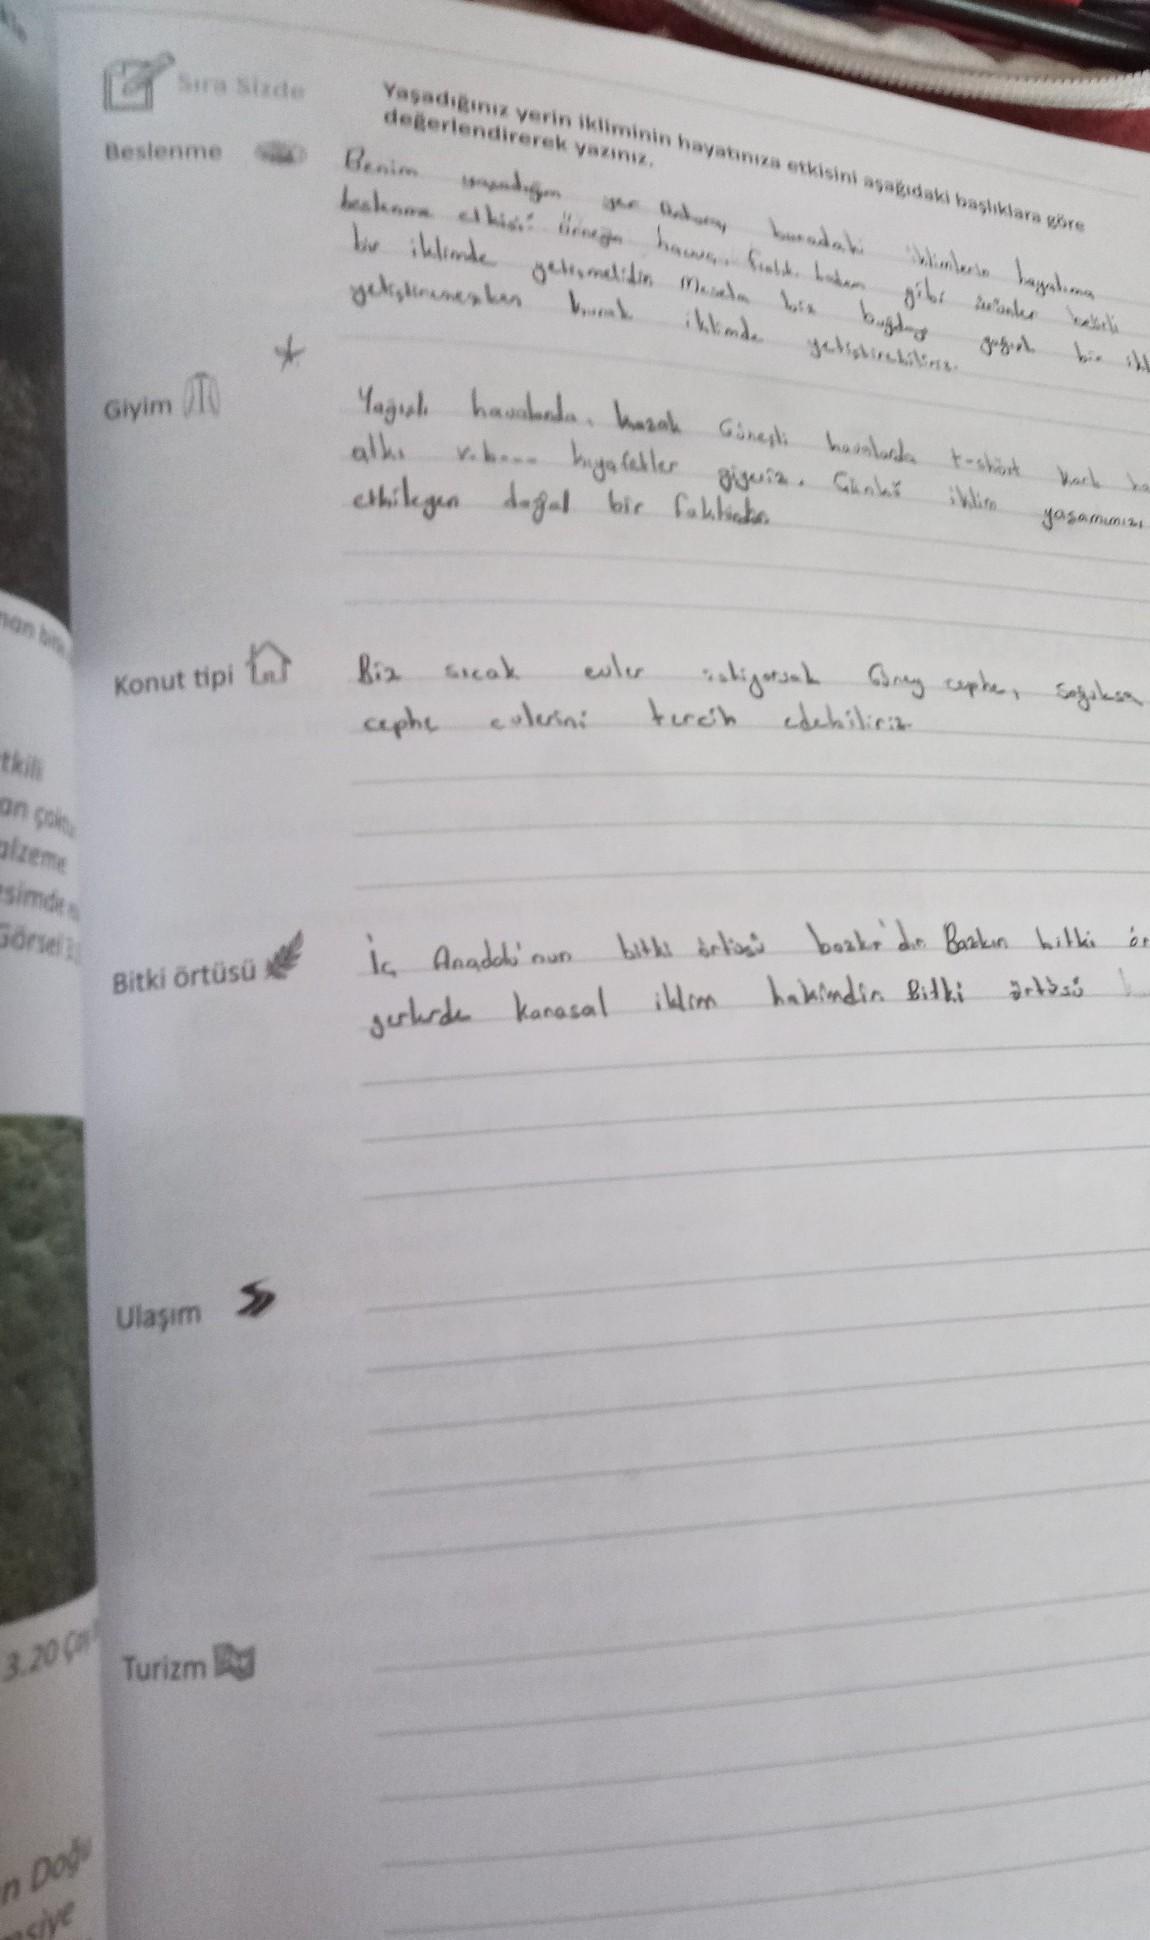 Sıra Sizde
Yaşadığınız yerin ikliminin hayatınıza etkisini aşağıdaki başlıklara göre
değerlendirerek yazınız.
Beslenme
Benim yaşadığım yer Ankara, buradaki iklimlerin hayatıma
beslenme etkisi: Örneğin havuç, gibi ürünler belirli
bir iklimde yetişmelidir. Mesela biz buğday yağışlı bir
yetiştiremezken kurak iklimde yetiştirebiliriz.
Giyim
Yağışlı havalarda, kazak Güneşli havalarda t-shört
kıyafetler giyeriz. Çünkü iklim yaşamımızı
etkileyen doğal bir faktördür.
Konut tipi
Biz sıcak evler istiyorsak Güney cephe, soğuksa
cephe evlerini tercih edebiliriz.
Bitki örtüsü
İç Anadolu'nun bitki örtüsü bozkır'dır. Bozkırın bitki
yerlerde karasal iklim hakimdir. Bitki örtüsü
Ulaşım
Turizm
tkili
an
alzeme
simde
Görsel
3.20
n Doğu